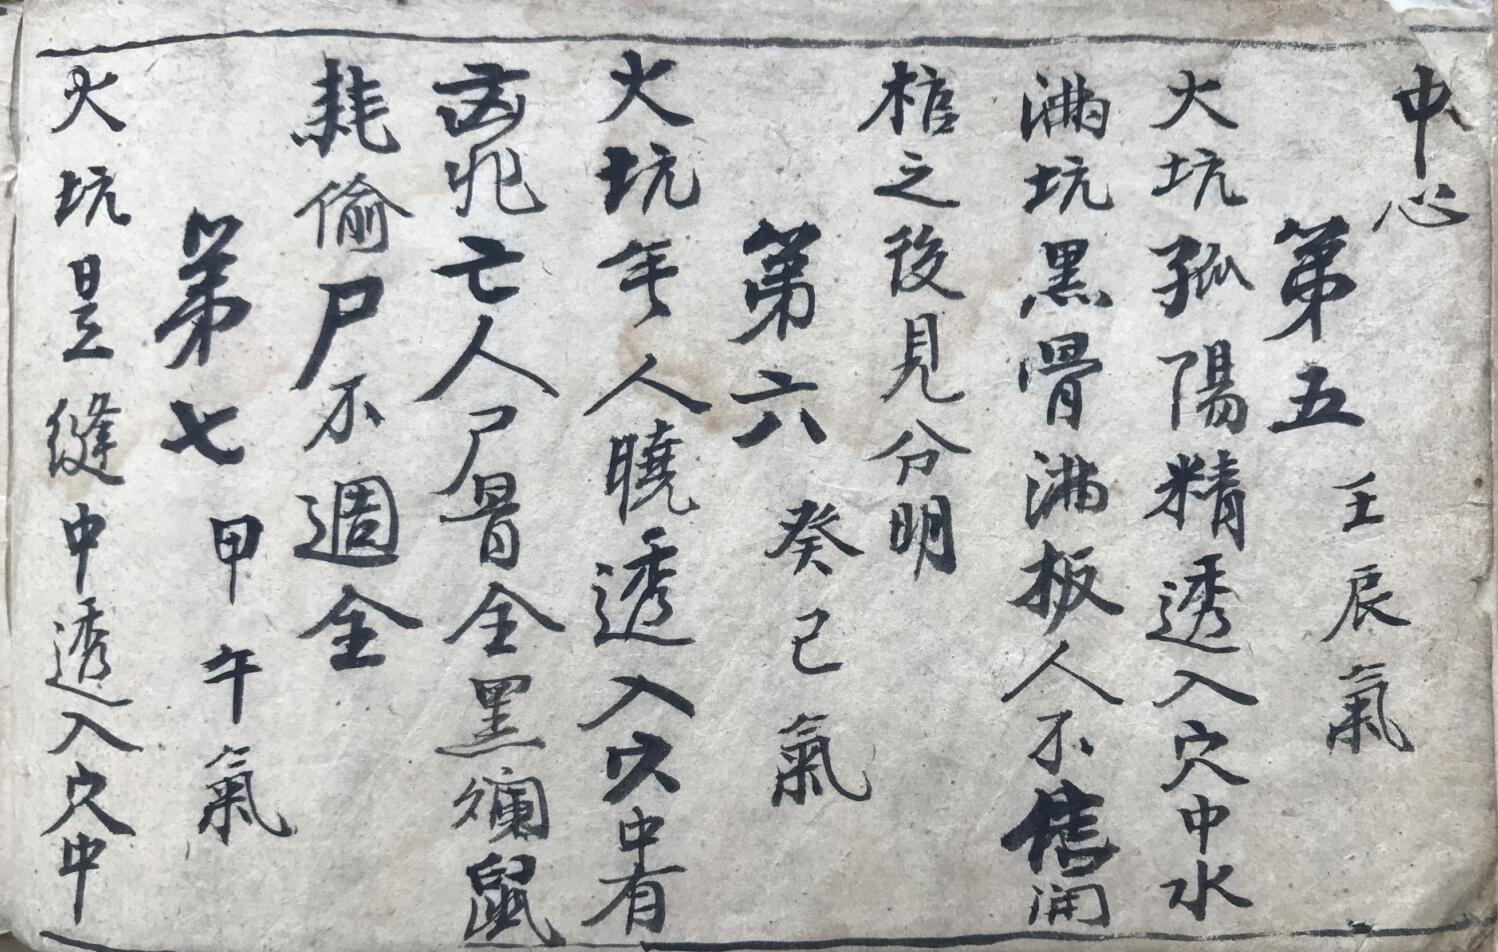 中心
第五 壬辰氣
火坑孤陽精透入穴中水
滿坑黑骨滿板人不信開
棺之後見分明
第六 癸巳氣
火坑年人曉透入穴中有
凶兆亡人尸骨全黑爛鼠
耗偷尸不週全
第七 甲午氣
火坑是縫中透入穴中